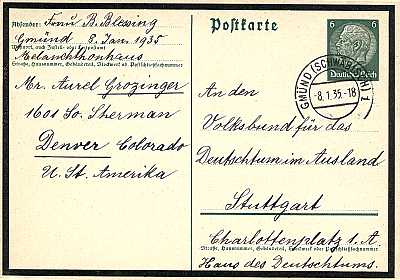 Absender: Frau B. Blessing
Gmünd 8. Jan. 1935
Wohnort, auch Zustell- oder Leitpostamt
Melanchthonhaus
Straße, Hausnummer, Gebäudeteil, Stockwerk od. Postschließfachnummer
Mr. Aurel Grozinger
1601 So. Sherman
Denver Colorado
U. St. Amerika
Postkarte
6 6
Deutsches Reich
GMÜND (SCHWÄB)
-8.1.35.-18
1
An den
Volksbund für das
Deutschtum im Ausland
Stuttgart
Charlottenplatz 1. A.
Straße, Hausnummer, Gebäudeteil, Stockwerk oder Postschließfachnummer
Haus des Deutschtums.